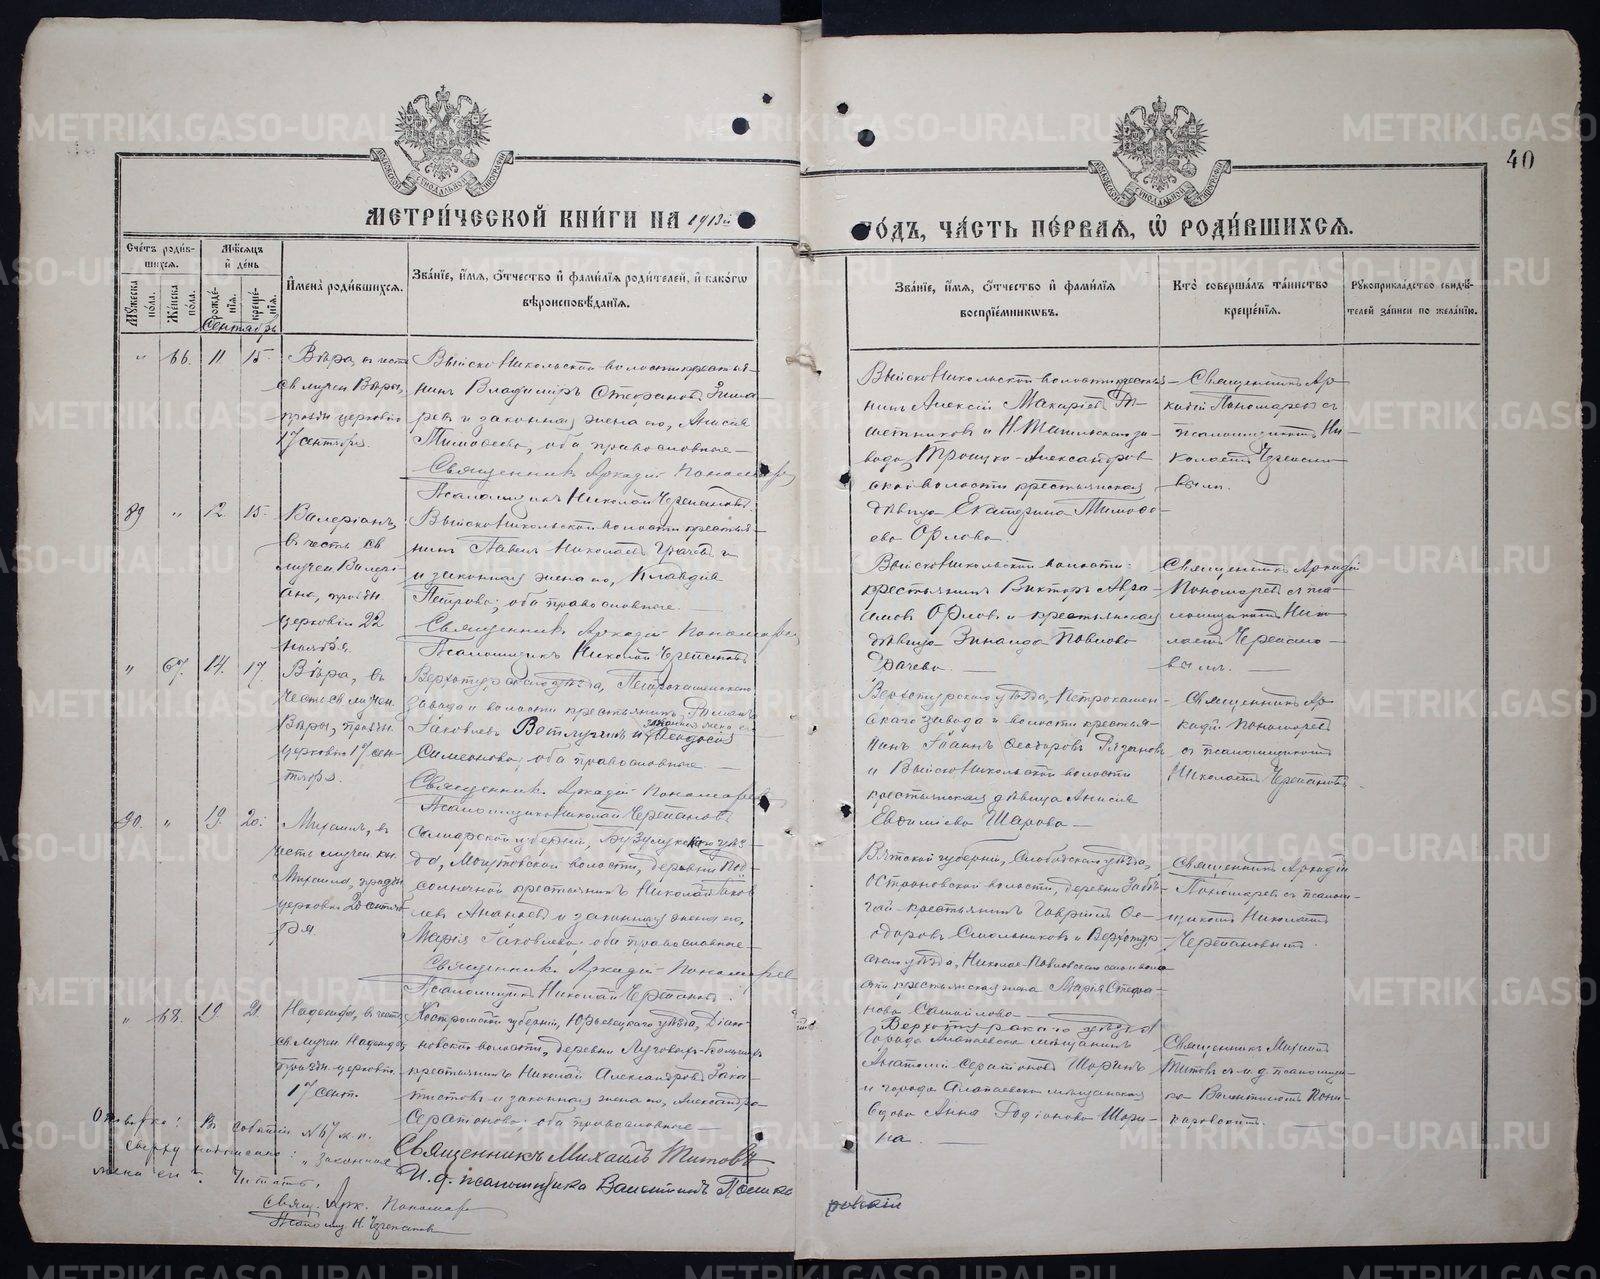 40
МЕТРИЧЕСКОЙ КНИГИ НА 1913й ГОДЪ, ЧАСТЬ ПЕРВАЯ, Ѿ РОДИВШИХСЯ.
Счетъ родившихся.
Мужеска пола.
Женска пола.
Мѣсяцъ и день
рожденія.
крещенія.
Имена родившихся.
Званіе, имя, отчество и фамилія родителей, и какогѡ вѣроисповѣданія.
Званіе, имя, отчество и фамилія воспріемниковъ.
Кто совершалъ таинство крещенія.
Рукоприкладство свидѣтелей записи по желанію.
Сентябрь
" 66. 11 15.
Вѣра, въ честь
св. мучен Вѣры,
праздн церковію
17 сентября.
Выйско Никольской волости крестья-
нинъ Владиміръ Стефановъ
и законная жена его, Анисія
Тимофеева, оба православные
Священникъ Аркадій Пономарев
Псаломщикъ Николай Черепановъ
Выйско Никольской волости крестья-
нинъ Алексій Макаріев
и Н. Тагильскаго за-
вода, Троицко-Александров
ской волости крестьянская
дѣвица Екатерина Тимофе-
ева Орлова.
Священникъ Ар-
кадій Пономаревъ съ
псаломщикомъ Ни-
колаемъ Черепано-
вымъ.
89 " 12. 15.
Валеріанъ,
въ честь св
мучен Валері-
ана, праздн
церковію 22
ноября.
Выйско Никольской волости крестья-
нинъ Павелъ Николаевъ Грачевъ
и законная жена его, Клавдія
Петрова; оба православные.
Священникъ Аркадій Пономарев
Псаломщикъ Николай Черепановъ
Выйско Никольской волости
крестьянинъ Викторъ Авра-
амовъ Орловъ и крестьянская
дѣвица Зинаида Павлова
Грачева.
Священникъ Аркадій
Пономаревъ съ пса-
ломщикомъ Нико-
лаемъ Черепано-
вымъ.
" 67. 14. 17.
Вѣра, въ
честь св мучен.
Вѣры, праздн.
церковію 17 сен-
тября.
Верхотурскаго уѣзда, Петрокаменскаго
завода и волости крестьянинъ Романъ
Іаковлевъ Ветлугинъ и законная жена его Ѳеодосія
Симеонова; оба православные
Священникъ Аркадій Пономаревъ
Псаломщикъ Николай Черепановъ
Верхотурскаго уѣзда, Петрокамен-
скаго завода и волости крестья-
нинъ Іоаннъ Ѳеодоровъ Рязановъ
и Выйско Никольской волости
крестьянская дѣвица Анисія
Евфиміева Шарова
Священникъ Ар-
кадій Пономаревъ
съ псаломщикомъ
Николаемъ Черепановымъ
90. " 19. 20.
Михаилъ, въ
честь мучен кн.
Михаила, праздн
церковію 20 сентяб-
ря.
Самарской губерніи, Бузулукскаго уѣз-
да, волости, деревни Под-
солнечной крестьянинъ Николай Іаков
левъ Ананьевъ и законная жена его,
Марія Іаковлева; оба православные
Священникъ Аркадій Пономарев
Псаломщикъ Николай Черепановъ.
Вятской губерніи, Слободскаго уѣзда,
волости, деревни
крестьянинъ Гавріилъ Ѳе-
одоровъ Смольниковъ и Верхотур-
скаго уѣзда, Николае-Павловскаго села и воло-
сти крестьянская жена Марія Стефа-
нова Самойлова
Священникъ Аркадій
Пономаревъ съ псалом-
щикомъ Николаемъ
Черепановымъ.
" 68. 19. 21
Надежда, въ честь
св мучен Надежды
праздн церковію
17 сент.
Костромской губерніи, Юрьевецкаго уѣзда,
новской волости, деревни Луговыхъ-Большихъ
крестьянинъ Николай Александровъ
и законная жена его, Александра
Серапіонова; оба православные
Священникъ Михаилъ Титовъ
И. д. псаломщика Валентинъ Пони
ровскій
Верхотурскаго уѣзда
города Алапаевска мѣщанинъ
Анатолій Серапіоновъ Шоринъ
и города Алапаевска мѣщанская
вдова Анна Родіонова Шори-
на.
Священникъ Михаилъ
Титовъ съ и. д. псаломщи-
ка Валентиномъ Пони-
ровскимъ.
Оговорка: Въ событіи №67 ж. п.
сверху написанно: "законная
жена его". Читать.
Свящ. Арк. Пономарев
Псаломщ. Н. Черепановъ
METRIKI.GASO-URAL.RU